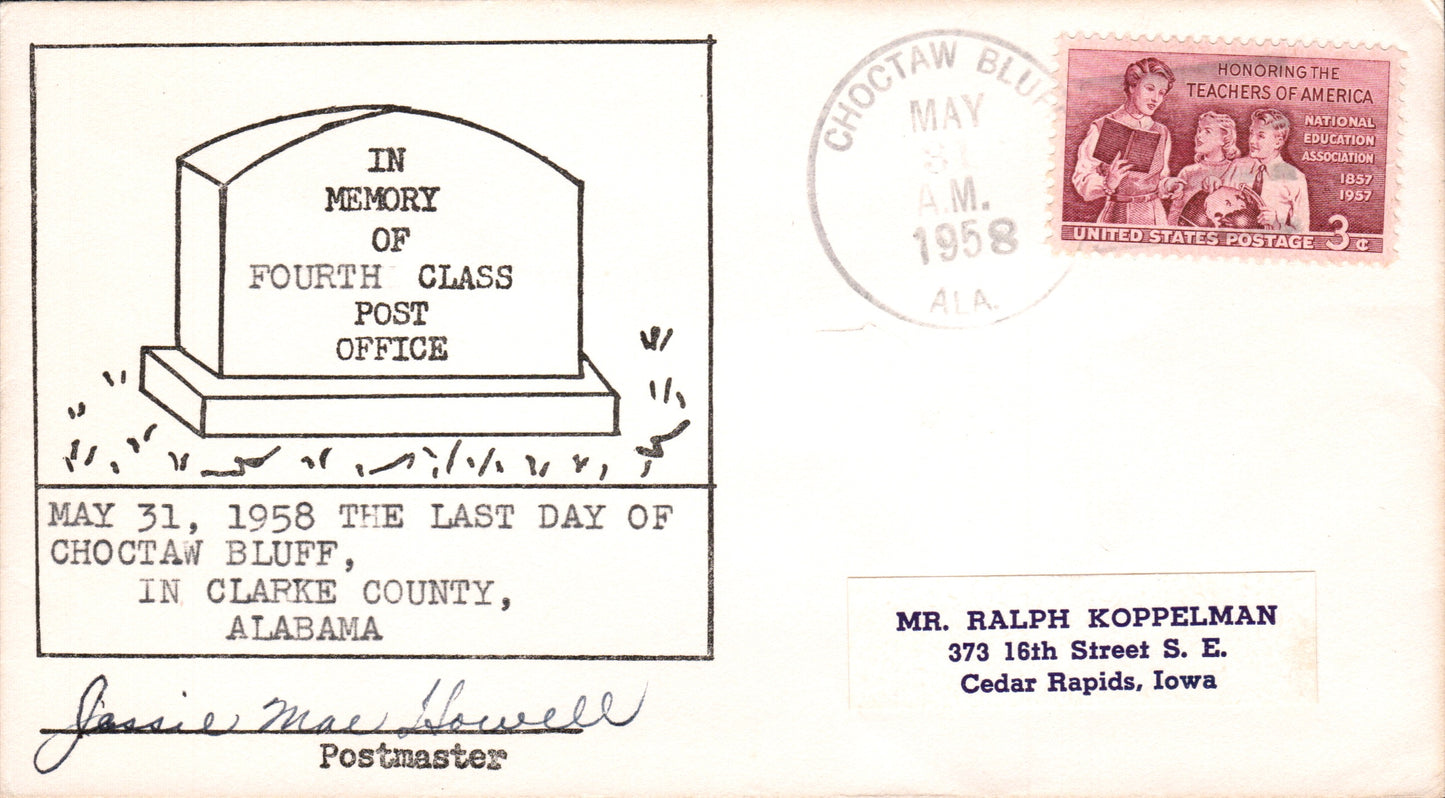 IN
MEMORY
OF
FOURTH CLASS
POST
OFFICE
MAY 31, 1958 THE LAST DAY OF
CHOCTAW BLUFF,
IN CLARKE COUNTY,
ALABAMA
Jessie Mae Howell
Postmaster
CHOCTAW BLUFF
MAY
31
A.M.
1958
ALA.
HONORING THE
TEACHERS OF AMERICA
NATIONAL
EDUCATION
ASSOCIATION
1857
1957
UNITED STATES POSTAGE 3¢
MR. RALPH KOPPELMAN
373 16th Street S. E.
Cedar Rapids, Iowa